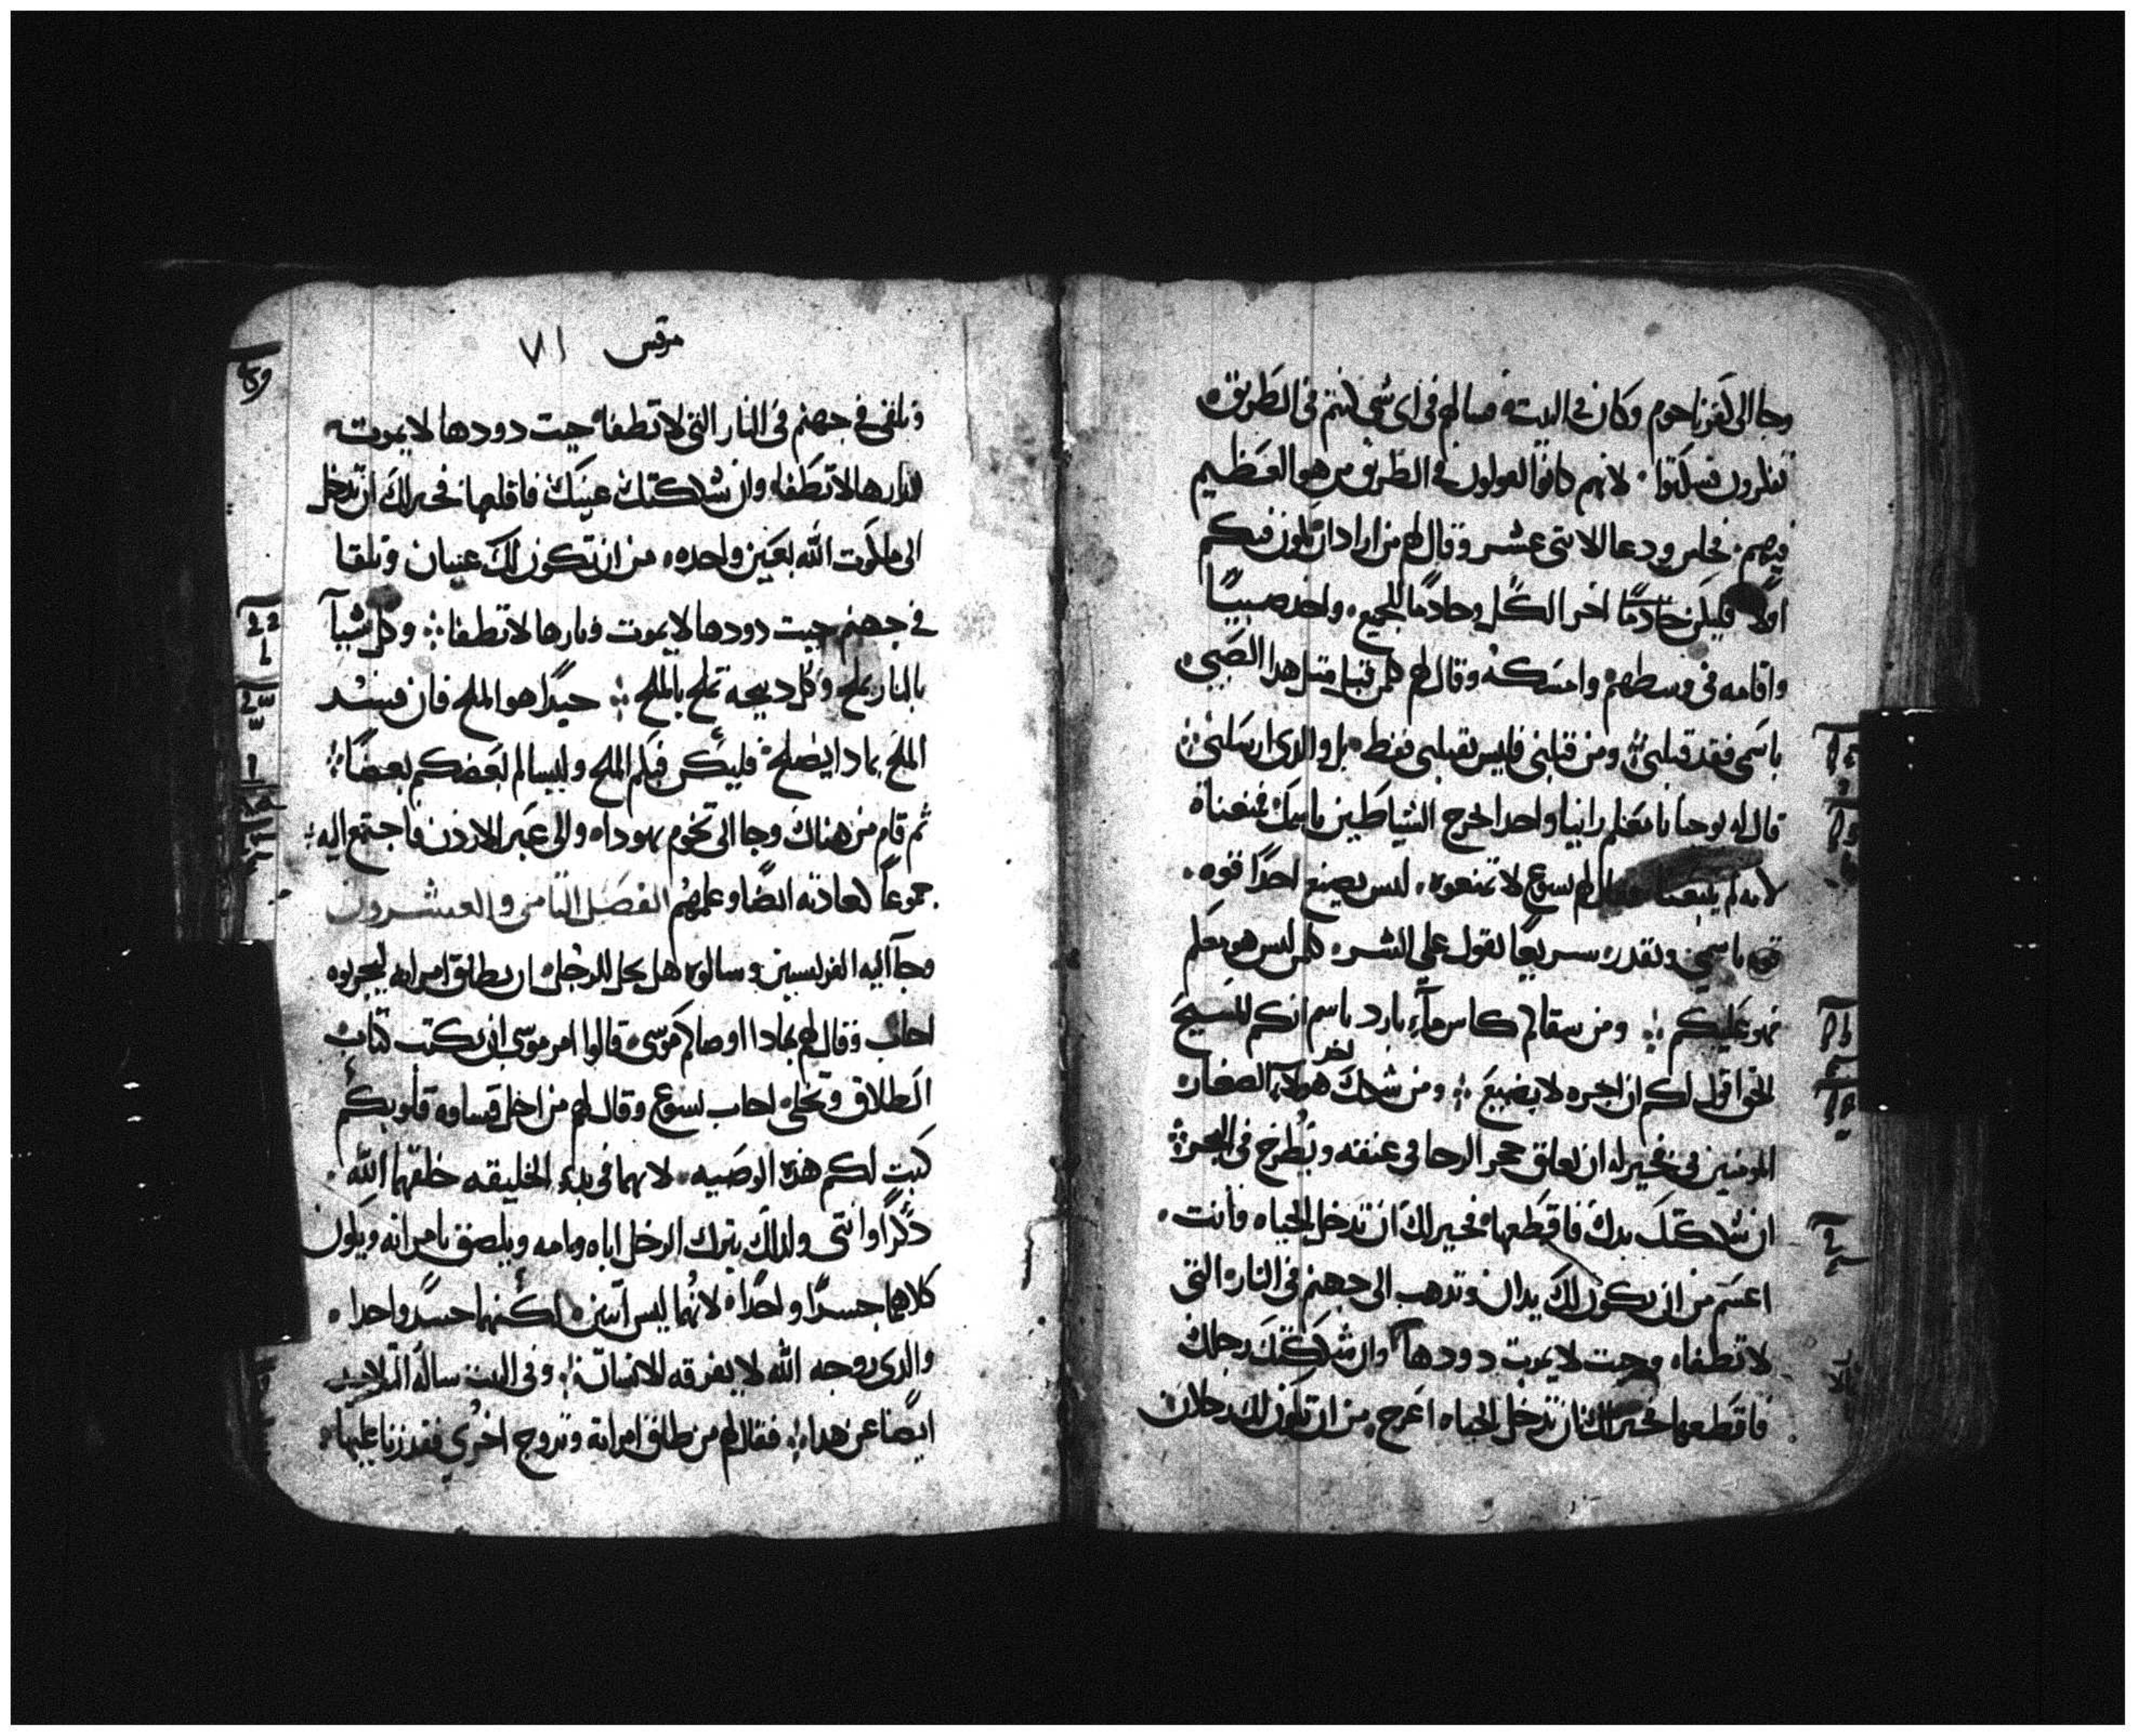 وجا الى كفرناحوم وكان في البيت فسالهم في اى شي كنتم في الطريق
تفكرون فسكتوا لانهم كانوا يقولون في الطريق من هو العظيم
فيهم فجلس ودعا الاثنى عشر وقال لهم من اراد ان يكون فيكم
اولا فليكن خادمًا اخر الكل وخادمًا للجميع واخذ صبيًا
واقامه فى وسطهم وامسكه وقال لهم كلمن قبل مثل هدا الصبي
باسمى فقد قبلنى ومن قبلنى فليس يقبلنى فقط بل والدى ارسلنى
قال له يوحنا يا معلم راينا واحدا يخرج الشياطين باسمك فمنعناه
لانه لم يتبعنا فقال لهم يسوع لا تمنعوه ليس يصنع احدًا قوه
باسمي ويقدر سريعًا يقول علي الشر كلمن ليس هو معكم
فهو عليكم ومن سقاكم كاس مآء بارد باسم انكم للمسيح
الحق اقول لكم ان اجره لا يضيع ومن شكك احد هولاء الصغار
المومنين بى فخير له ان يعلق حجر الرحا في عنقه ويطرح في البحر
ان شككتك يدك فاقطعها فخير لك ان تدخل الحياه وانت
اعسم من ان يكون لك يدان وتدهب الى جهنم في النار التى
لا تطفاه وحيت لا يموت دودها وان شككتك رجلك
فاقطعها فخير لك ان تدخل الحياه اعرج من ان تكون لك رجلان
مرقس ٧١
وتلقى في جهنم في النار التى لا تطفاه حيت دودها لا يموت
ونارها لا تطفاه وان شككتك عينك فاقلعها فخير لك ان تدخل
الى ملكوت الله بعين واحده من ان تكون لك عينان وتلقا
في جهنم حيت دودها لا يموت ونارها لا تطفا وكل شيآ
بالنار يملح وكل دبيحه تملح بالملح جيدًا هو الملح فان فسد
الملح بمادا يصلح فليكن فيكم الملح وليسالم بعضكم بعضًا
ثم قام من هناك وجا الى تخوم يهوداه والى عبر الاردن فاجتمع اليه
جموعاً كعادته ايضًا وعلمهم الفصل التامن والعشرون
وجآ اليه الفريسيين وسالوه هل يحل للرجل ان يطلق امراته ليجربوه
اجاب وقال لهم بمادا اوصاكم موسى قالوا امر موسى ان يكتب كتاب
الطلاق وتخلى اجاب يسوع وقال لهم من اجل قساوه قلوبكم
كتب لكم هده الوصيه لانهما في بدء الخليقه خلقهما الله
دكرًا وانتى ولدلك يترك الرجل اباه وامه ويلصق بامراته ويكون
كلاهما جسدًا واحدًا لانهما ليس اتنين لكنهما جسدًا واحدا
والدى زوجه الله لا يفرقه الانسان وفى البيت ساله التلاميد
ايضًا عن هدا فقال لهم من طلق امراته وتزوج اخرى فقد زنا عليها